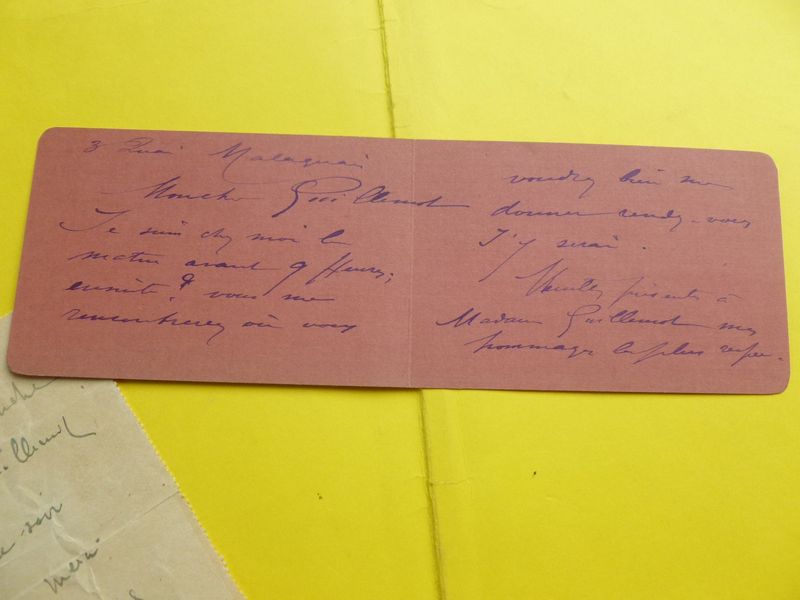 3 Quai Malaquai
Mon cher Guillemot
Je suis chez moi le
matin avant 9 heures;
ensuite? vous me
rencontrerez où vous
voudrez bien me
donner rendez-vous
J'y serai.
Veuillez présenter à
Madame Guillemot mes
hommages les plus respec-
soir
merci